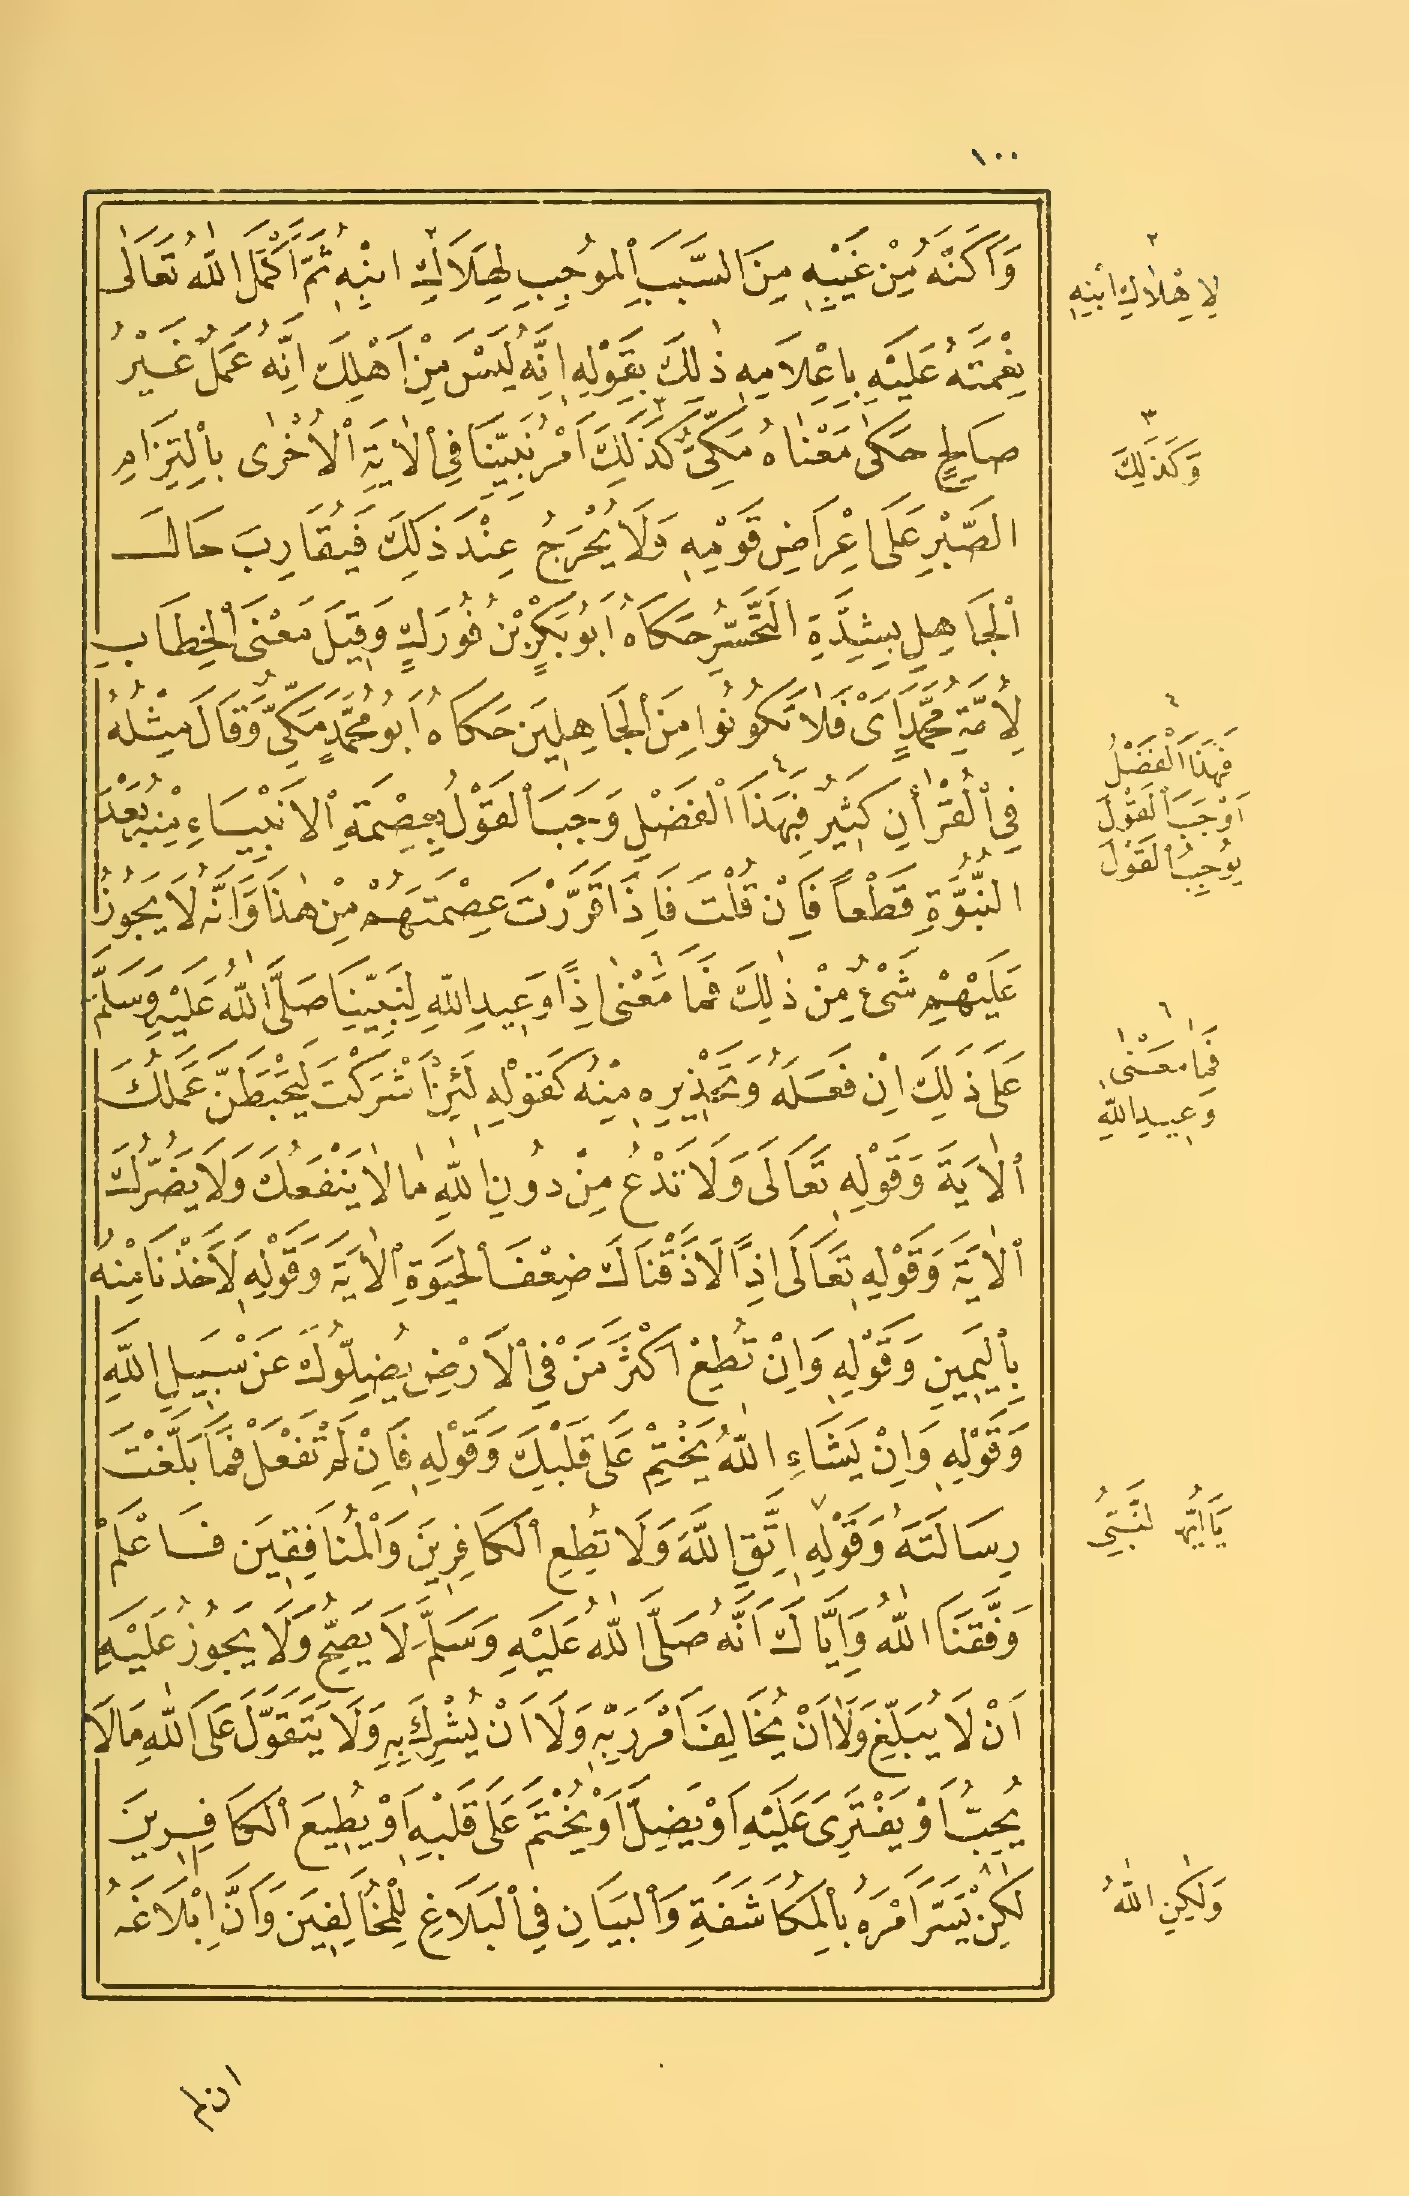 ١٠٠
وَأَكَنَّهُ مِنْ غَيْبِهِ مِنَ السَّبَبِ الْمُوجِبِ لِهَلَاكِ ابْنِهِ ثُمَّ أَكْمَلَ اللّٰهُ تَعَالٰى
نِعْمَتَهُ عَلَيْهِ بِاِعْلَامِهِ ذٰلِكَ بِقَوْلِهِ اِنَّهُ لَيْسَ مِنْ اَهْلِكَ اِنَّهُ عَمَلٌ غَيْرُ
صَالِحٍ حَكٰى مَعْنٰاهُ مَكِّىٌّ كَذٰلِكَ اُمِرَ نَبِيُّنَا فِى الْاٰيَةِ الْاُخْرٰى بِالْتِزَامِ
الصَّبْرِ عَلَى اِعْرَاضِ قَوْمِهِ وَلَا يُحْرَجُ عِنْدَ ذٰلِكَ فَيُقَارِبَ حَالَ
الْجَاهِلِ بِشِدَّةِ التَّحَسُّرِ حَكَاهُ اَبُو بَكْرِ بْنُ فُورَكٍ وَقِيلَ مَعْنَى الْخِطَابِ
لِاُمَّةِ مُحَمَّدٍ اَىْ فَلَا تَكُونُوا مِنَ الْجَاهِلِينَ حَكَاهُ اَبُو مُحَمَّدٍ مَكِّىٌّ وَقَالَ مِثْلُهُ
فِى الْقُرْاٰنِ كَثِيرٌ فَبِهَذَا الْفَضْلِ وَجَبَ الْقَوْلُ بِعِصْمَةِ الْاَنْبِيَاءِ مِنْهُ بَعْدَ
النُّبُوَّةِ قَطْعاً فَاِنْ قُلْتَ فَاِذَا قَرَّرْتَ عِصْمَتَهُمْ مِنْ هٰذَا وَاَنَّهُ لَا يَجُوزُ
عَلَيْهِمْ شَىْءٌ مِنْ ذٰلِكَ فَمَا مَعْنٰى اِذًا وَعِيدِ اللّٰهِ لِنَبِيِّنَا صَلَّى اللّٰهُ عَلَيْهِ وَسَلَّمَ
عَلَى ذٰلِكَ اِنْ فَعَلَهُ وَتَحْذِيرِهِ مِنْهُ كَقَوْلِهِ لَئِنْ اَشْرَكْتَ لَيَحْبَطَنَّ عَمَلُكَ
الْاٰيَةَ وَقَوْلِهِ تَعَالَى وَلَا تَدْعُ مِنْ دُونِ اللّٰهِ مٰا لٰا يَنْفَعُكَ وَلَا يَضُرُّكَ
الْاٰيَةَ وَقَوْلِهِ تَعَالَى اِذًا لَاَذَقْنَاكَ ضِعْفَ الْحَيٰوةِ الْاٰيَةَ وَقَوْلِهِ لَاَخَذْنَا مِنْهُ
بِالْيَمِينِ وَقَوْلِهِ وَاِنْ تُطِعْ اَكْثَرَ مَنْ فِى الْاَرْضِ يُضِلُّوكَ عَنْ سَبِيلِ اللّٰهِ
وَقَوْلِهِ وَاِنْ يَشَاءِ اللّٰهُ يَخْتِمْ عَلَى قَلْبِكَ وَقَوْلِهِ فَاِنْ لَمْ تَفْعَلْ فَمَا بَلَّغْتَ
رِسَالَتَهُ وَقَوْلِهِ اِتَّقِ اللّٰهَ وَلَا تُطِعِ الْكَافِرِينَ وَالْمُنَافِقِينَ فَاعْلَمْ
وَفَّقَنَا اللّٰهُ وَاِيَّاكَ اَنَّهُ صَلَّى اللّٰهُ عَلَيْهِ وَسَلَّمَ لَا يَصِحُّ وَلَا يَجُوزُ عَلَيْهِ
اَنْ لَا يُبَلِّغَ وَلَا اَنْ يُخَالِفَ اَمْرَ رَبِّهِ وَلَا اَنْ يُشْرِكَ بِهِ وَلَا يَتَقَوَّلَ عَلَى اللّٰهِ مَا لَا
يُحِبُّ اَوْ يَفْتَرِىَ عَلَيْهِ اَوْ يَضِلَّ اَوْ يُخْتَمَ عَلَى قَلْبِهِ اَوْ يُطِيعَ الْكَافِرِينَ
لٰكِنْ يَسَّرَ اَمْرَهُ بِالْمُكَاشَفَةِ وَالْبَيَانِ فِى الْبَلَاغِ لِلْمُخَالِفِينَ وَاَنَّ اِبْلَاغَهُ
٢
لِاِهْلَاكِ ابْنِهِ
٣
وَكَذٰلِكَ
٤
فَهَذَا الْفَضْلُ
اَوْجَبَ الْقَوْلَ
يُوجِبُ الْقَوْلَ
٦
فَمَا مَعْنٰى
وَعِيدِ اللّٰهِ
يَا اَيُّهَا النَّبِىُّ
وَلٰكِنِ اللّٰهُ
ان لم